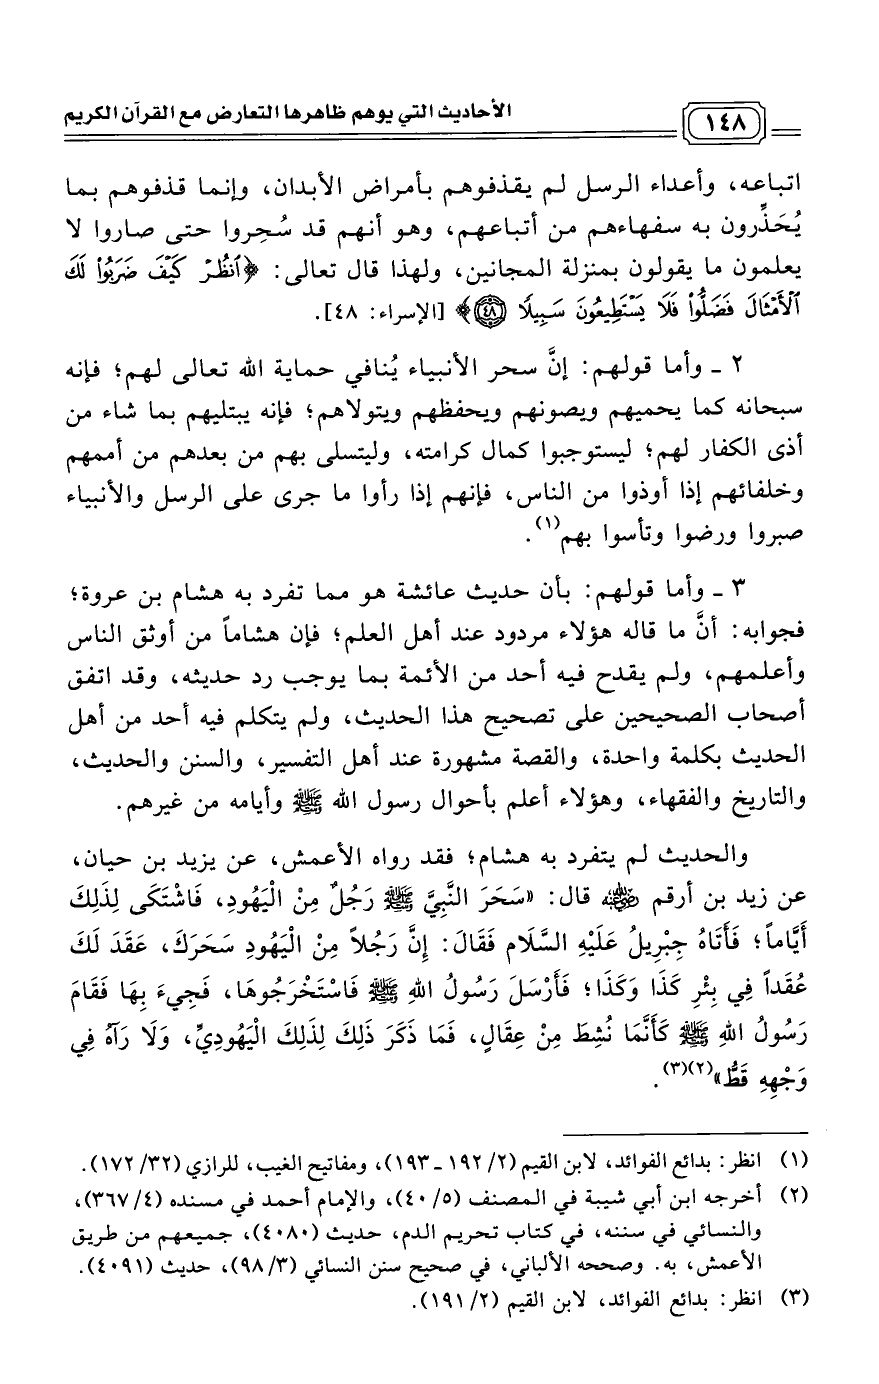 ١٤٨ الأحاديث التي يوهم ظاهرها التعارض مع القرآن الكريم
اتباعه، وأعداء الرسل لم يقذفوهم بأمراض الأبدان، وإنما قذفوهم بما
يُحَذِّرون به سفهاءهم من أتباعهم، وهو أنهم قد سُحِروا حتى صاروا لا
يعلمون ما يقولون بمنزلة المجانين، ولهذا قال تعالى: ﴿ٱنظُرْ كَيْفَ ضَرَبُوا۟ لَكَ
ٱلْأَمْثَالَ فَضَلُّوا۟ فَلَا يَسْتَطِيعُونَ سَبِيلًا ۝٤٨﴾ [الإسراء: ٤٨].
٢ ـ وأما قولهم: إنَّ سحر الأنبياء يُنافي حماية الله تعالى لهم؛ فإنه
سبحانه كما يحميهم ويصونهم ويحفظهم ويتولاهم؛ فإنه يبتليهم بما شاء من
أذى الكفار لهم؛ ليستوجبوا كمال كرامته، وليتسلى بهم من بعدهم من أممهم
وخلفائهم إذا أوذوا من الناس، فإنهم إذا رأوا ما جرى على الرسل والأنبياء
صبروا ورضوا وتأسوا بهم(١).
٣ ـ وأما قولهم: بأن حديث عائشة هو مما تفرد به هشام بن عروة؛
فجوابه: أنَّ ما قاله هؤلاء مردود عند أهل العلم؛ فإن هشاماً من أوثق الناس
وأعلمهم، ولم يقدح فيه أحد من الأئمة بما يوجب رد حديثه، وقد اتفق
أصحاب الصحيحين على تصحيح هذا الحديث، ولم يتكلم فيه أحد من أهل
الحديث بكلمة واحدة، والقصة مشهورة عند أهل التفسير، والسنن والحديث،
والتاريخ والفقهاء، وهؤلاء أعلم بأحوال رسول الله ﷺ وأيامه من غيرهم.
والحديث لم يتفرد به هشام؛ فقد رواه الأعمش، عن يزيد بن حيان،
عن زيد بن أرقم رضي الله عنه قال: «سَحَرَ النَّبِيَّ ﷺ رَجُلٌ مِنْ الْيَهُودِ، فَاشْتَكَى لِذَلِكَ
أَيَّاماً؛ فَأَتَاهُ جِبْرِيلُ عَلَيْهِ السَّلَام فَقَالَ: إِنَّ رَجُلاً مِنْ الْيَهُودِ سَحَرَكَ، عَقَدَ لَكَ
عُقَداً فِي بِئْرِ كَذَا وَكَذَا؛ فَأَرْسَلَ رَسُولُ اللهِ ﷺ فَاسْتَخْرَجُوهَا، فَجِيءَ بِهَا فَقَامَ
رَسُولُ اللهِ ﷺ كَأَنَّمَا نُشِطَ مِنْ عِقَالٍ، فَمَا ذَكَرَ ذَلِكَ لِذَلِكَ الْيَهُودِيِّ، وَلَا رَآهُ فِي
وَجْهِهِ قَطُّ»(٢)(٣).
(١) انظر: بدائع الفوائد، لابن القيم (٢/ ١٩٢ ـ ١٩٣)، ومفاتيح الغيب، للرازي (٣٢/ ١٧٢).
(٢) أخرجه ابن أبي شيبة في المصنف (٥/ ٤٠)، والإمام أحمد في مسنده (٤/ ٣٦٧)،
والنسائي في سننه، في كتاب تحريم الدم، حديث (٤٠٨٠)، جميعهم من طريق
الأعمش، به. وصححه الألباني، في صحيح سنن النسائي (٣/ ٩٨)، حديث (٤٠٩١).
(٣) انظر: بدائع الفوائد، لابن القيم (٢/ ١٩١).